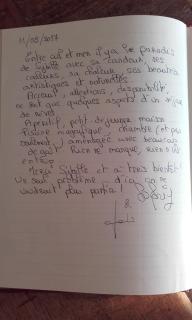 11/08/2017
Entre ciel et mer il y a le paradis
de Sybille avec sa candeur, ses
couleurs, sa chaleur, ses beautés
artistiques et naturelles.
Accueil, attentions, disponibilité,
ne sont que quelques aspects d'un séjour
de rêves.
Apéritif, petit déjeuner maison
Piscine magnifique, chambre (et pas
seulement) aménagée avec beaucoup
de goût. Rien ne manque, rien n'est
en trop.
Merci Sybille et à très bientôt!
Un seul problème - d'ici on ne
voudrait plus partir!
&